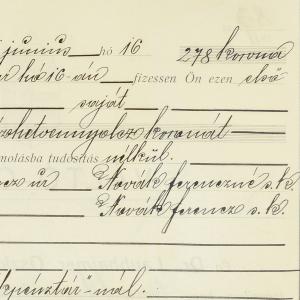 junius hó 16 278 korona
hó 16-án fizessen Ön ezen első
saját
hetvennyolcz koronát
tudósítás nélkül.
ur Novák Ferenczné s.k.
Novák Ferencz s.k.
pénztár"-nál.